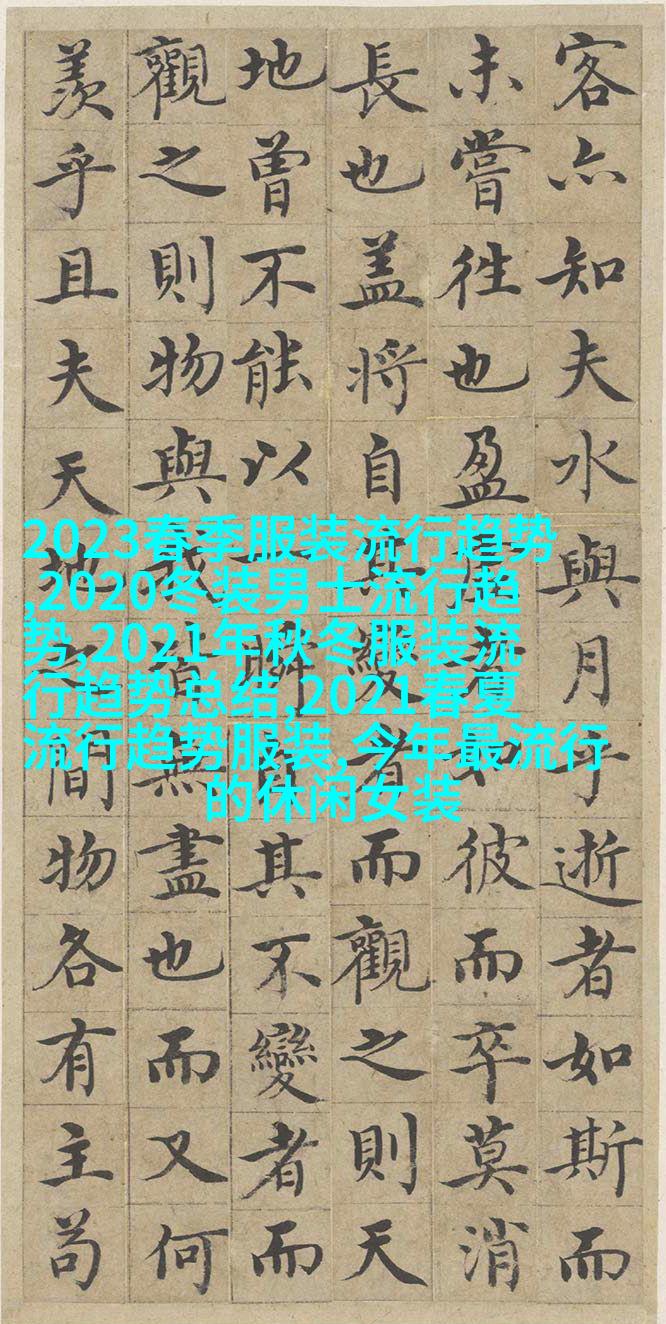 客亦知夫水與月乎逝者如斯而
未嘗徃也盈虛者如彼而卒莫消
長也盖將自其變者而觀之則天
地曾不能以一瞬自其不變者而
觀之則物與我皆無盡也而又何
羨乎且夫天地之間物各有主苟
2023春季服装流行趋势
,2020冬装男士流行趋
势,2021年秋冬服装流
行趋势总结,2021春夏
流行趋势服装,今年最流行
的休闲女装